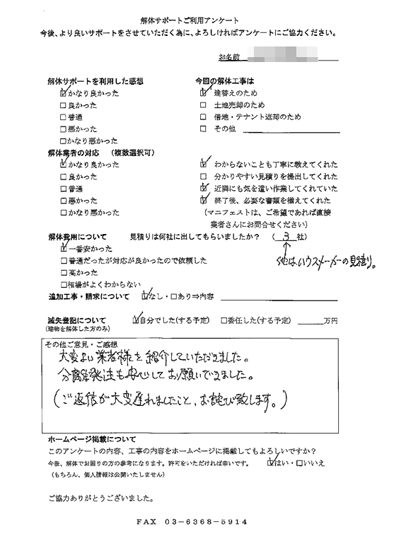 解体サポートご利用アンケート
今後、より良いサポートをさせていただく為に、よろしければアンケートにご協力ください。
お名前
解体サポートを利用した感想
☑かなり良かった
□良かった
□普通
□悪かった
□かなり悪かった
今回の解体工事は
☑ 建替えのため
□ 土地売却のため
□ 借地・テナント返却のため
□ その他
解体業者の対応 (複数選択可)
☑かなり良かった
□良かった
□普通
□悪かった
□かなり悪かった
☑ わからないことも丁寧に教えてくれた
□ 分かりやすい見積りを提出してくれた
☑ 近隣にも気を遣い作業してくれていた
☑ 終了後、必要な書類を揃えてくれた
(マニフェストは、ご希望であれば直接
業者さんにお問合せください)
解体費用について 見積りは何社に出してもらいましたか? ( 3 社)
☑一番安かった
□普通だったが対応が良かったので依頼した
□高かった
□相場がよくわからない
他はハウスメーカーの見積り。
追加工事・請求について ☑なし・□あり⇒内容
滅失登記について ☑自分でした(する予定) □委任した(する予定) 万円
(建物を解体した方のみ)
その他ご意見・ご感想
大変よい業者様を紹介していただきました。
分離発注も安心してお願いできました。
(ご返信が大変遅れましたこと、お詫び致します。)
ホームページ掲載について
このアンケートの内容、工事の内容をホームページに掲載してもよろしいですか?
今後、解体でお困りの方の参考になります。許可をいただければ幸いです。 ☑はい・□いいえ
(もちろん、個人情報は公開いたしません)
ご協力ありがとうございました。
FAX 03-6368-5914